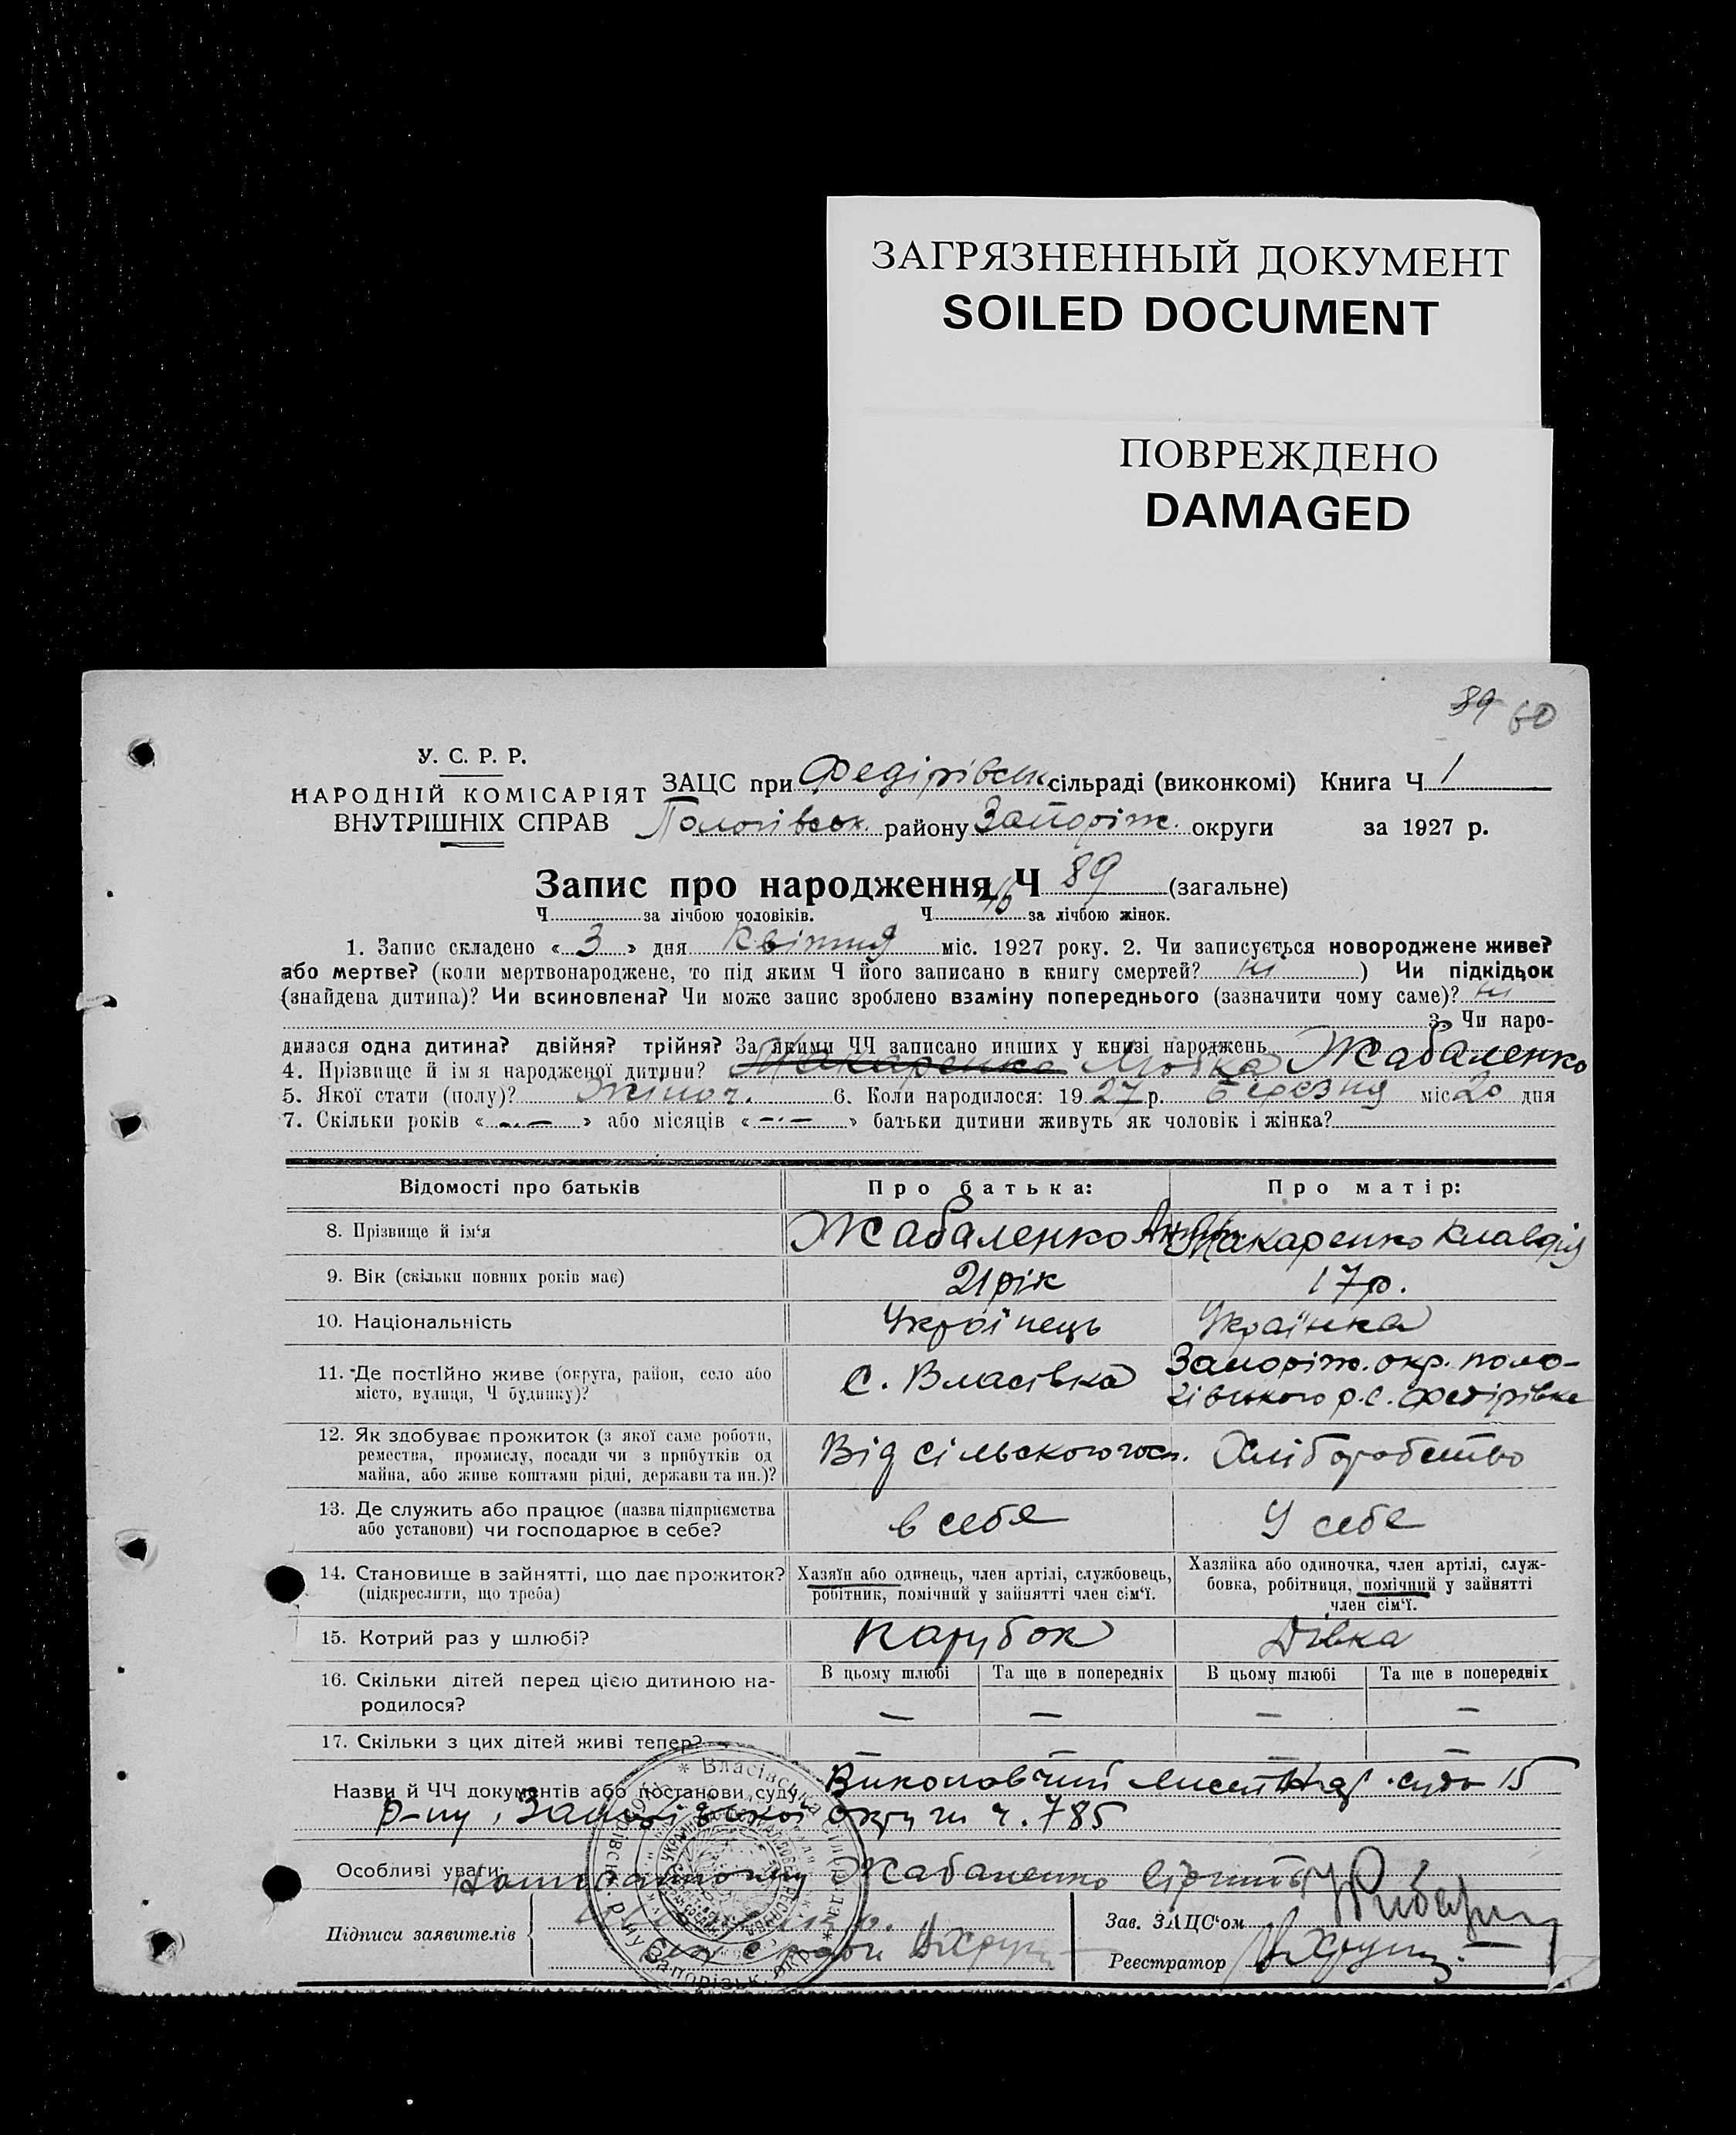 ЗАГРЯЗНЕННЫЙ ДОКУМЕНТ
SOILED DOCUMENT
ПОВРЕЖДЕНО
DAMAGED
89 60
У. С. Р. Р.
НАРОДНІЙ КОМІСАРІЯТ
ВНУТРІШНІХ СПРАВ
ЗАЦС при Федірівськ сільраді (виконкомі) Книга Ч 1
Пологівськ. району Запоріж. округи за 1927 р.
Запис про народження Ч 89 (загальне)
Ч за лічбою чоловіків. Ч 46 за лічбою жінок.
1. Запис складено « 3 » дня Квітня міс. 1927 року. 2. Чи записується новороджене живе?
або мертве? (коли мертвонароджене, то під яким Ч його записано в книгу смертей? ні ) Чи підкідьок
(знайдена дитина)? Чи всиновлена? Чи може запис зроблено взаміну попереднього (зазначити чому саме)? ні
3. Чи наро-
дилася одна дитина? двійня? трійня? За якими ЧЧ записано инших у книзі народжень
4. Прізвище й імя народженої дитини? Макаренко Любка Жабаленко
5. Якої стати (полу)? Жіноч. 6. Коли народилося: 1927 р. Березня міс 20 дня
7. Скільки років « — » або місяців « — » батьки дитини живуть як чоловік і жінка?
Відомості про батьків Про батька: Про матір:
8. Прізвище й ім'я Жабаленко Макаренко Клавдія
9. Вік (скільки повних років має) 21 рік 17 р.
10. Національність Україпець Українка
11. Де постійно живе (округа, район, село або місто, вулиця, Ч будинку)? С. Власівка Запоріж. окр. поло-
гівського р. с. Федірівка
12. Як здобуває прожиток (з якої саме роботи,
ремества, промислу, посади чи з прибутків од
майна, або живе коштами рідні, держави та ин.)? Від сільського госп. Хліборобство
13. Де служить або працює (назва підприємства
або установи) чи господарює в себе? в себе У себе
14. Становище в зайнятті, що дає прожиток?
(підкреслити, що треба)
Хазяїн або одинець, член артілі, службовець,
робітник, помічний у зайнятті член сім'ї.
Хазяйка або одиночка, член артілі, служ-
бовка, робітниця, помічний у зайнятті
член сім'ї.
15. Котрий раз у шлюбі? Парубок Дівка
16. Скільки дітей перед цією дитиною на-
родилося?
В цьому шлюбі Та ще в попередніх В цьому шлюбі Та ще в попередніх
— — — —
17. Скільки з цих дітей живі тепер? — — — —
Назви й ЧЧ документів або постанови суду Виконавчий лист Нар. суда 15
р-ну, Запорізької округи ч. 785
Особливі уваги:
Підписи заявителів
Зав. ЗАЦС'ом
Реєстратор
* Власівська сільрада *